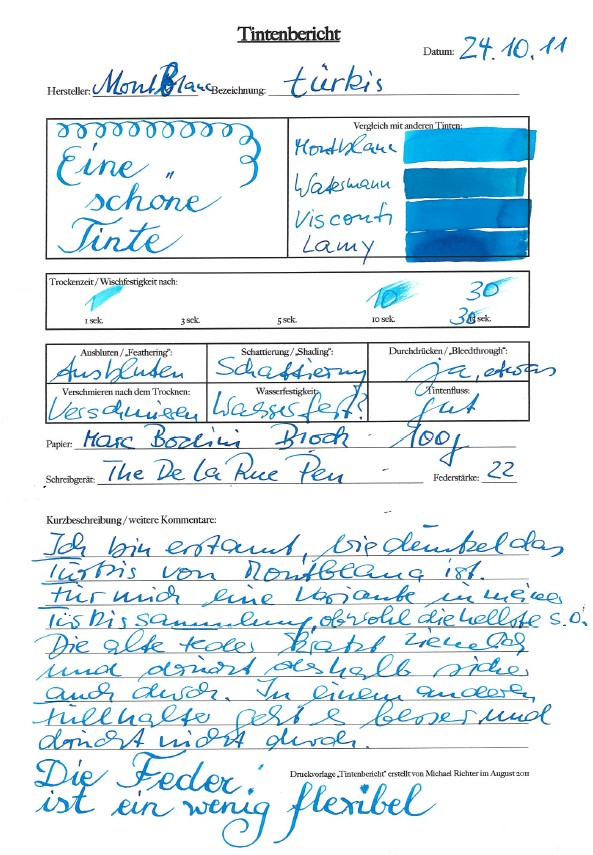 Tintenbericht
Datum: 24.10.11
Hersteller: MontBlanc Bezeichnung: türkis
Eine
schöne
Tinte
Vergleich mit anderen Tinten:
Montblanc
Watermann
Visconti
Lamy
Trockenzeit / Wischfestigkeit nach:
1 10 30
1 sek. 3 sek. 5 sek. 10 sek. 30 sek.
Ausbluten / „Feathering": Schattierung / „Shading": Durchdrücken / „Bleedthrough":
Ausbluten Schattierung ja, etwas
Verschmieren nach dem Trocknen: Wasserfestigkeit: Tintenfluss:
Verschmieren Wasserfest? gut
Papier: Marc Block - 100g
Schreibgerät: The De La Rue Pen Federstärke: 22
Kurzbeschreibung / weitere Kommentare:
Ich bin erstaunt, wie dunkel das
Türkis von Montblanc ist.
Für mich eine Variante in meiner
Türkissammlung, obwohl die hellste s.o.
Die alte Feder kratzt ziemlich
und drückt deshalb sicher
auch durch. In einem anderen
Füllhalter geht es besser und
drückt nicht durch.
Druckvorlage „Tintenbericht" erstellt von Michael Richter im August 2011
Die Feder
ist ein wenig flexibel